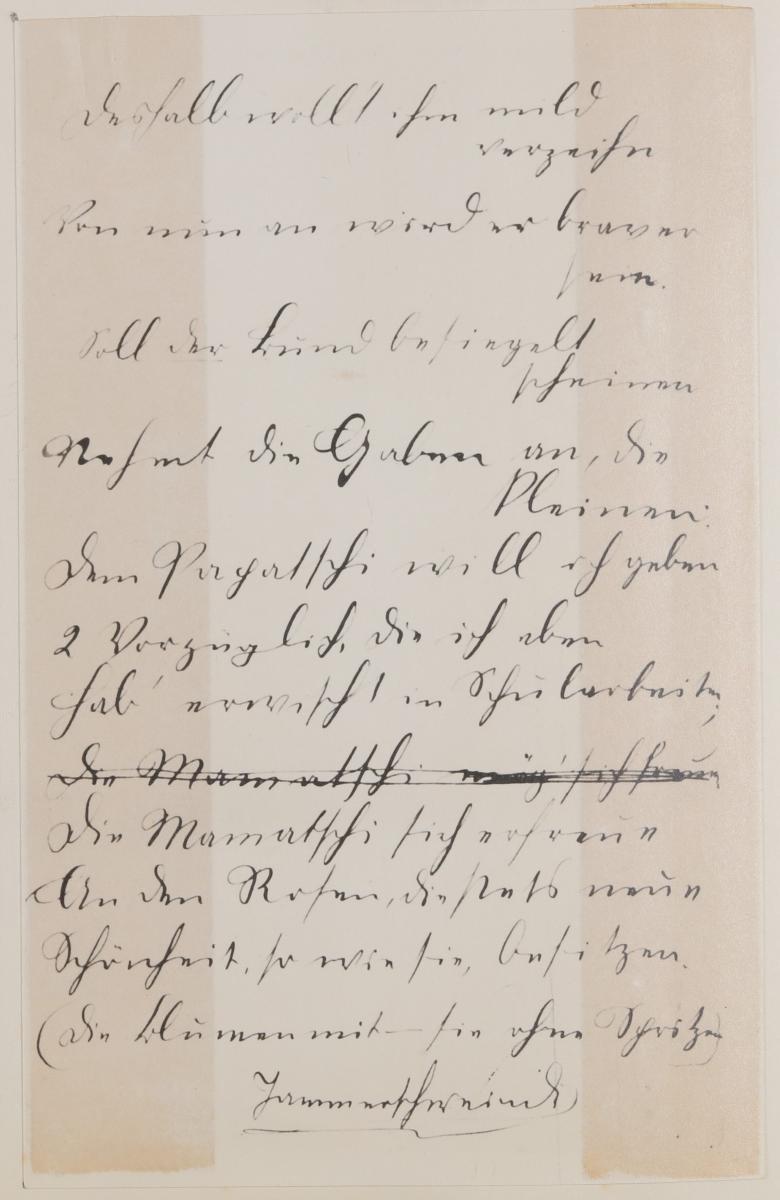 Deshalb wollt ihm mild
verzeihn
Von nun an wird er braver
sein.
Soll der Bund besiegelt
scheinen
Nehmt die Gaben an, die
kleinen:
Dem Papatschi will ich geben
2 Vorzüglich, die ich eben
hab' erwischt in Schularbeiten;
Die Mamatschi mög' sich freuen
Die Mamatschi sich erfreue
An den Rosen, die stets neue
Schönheit, so wie sie, besitzen.
(Die Blumen mit – sie ohne Spritzen)